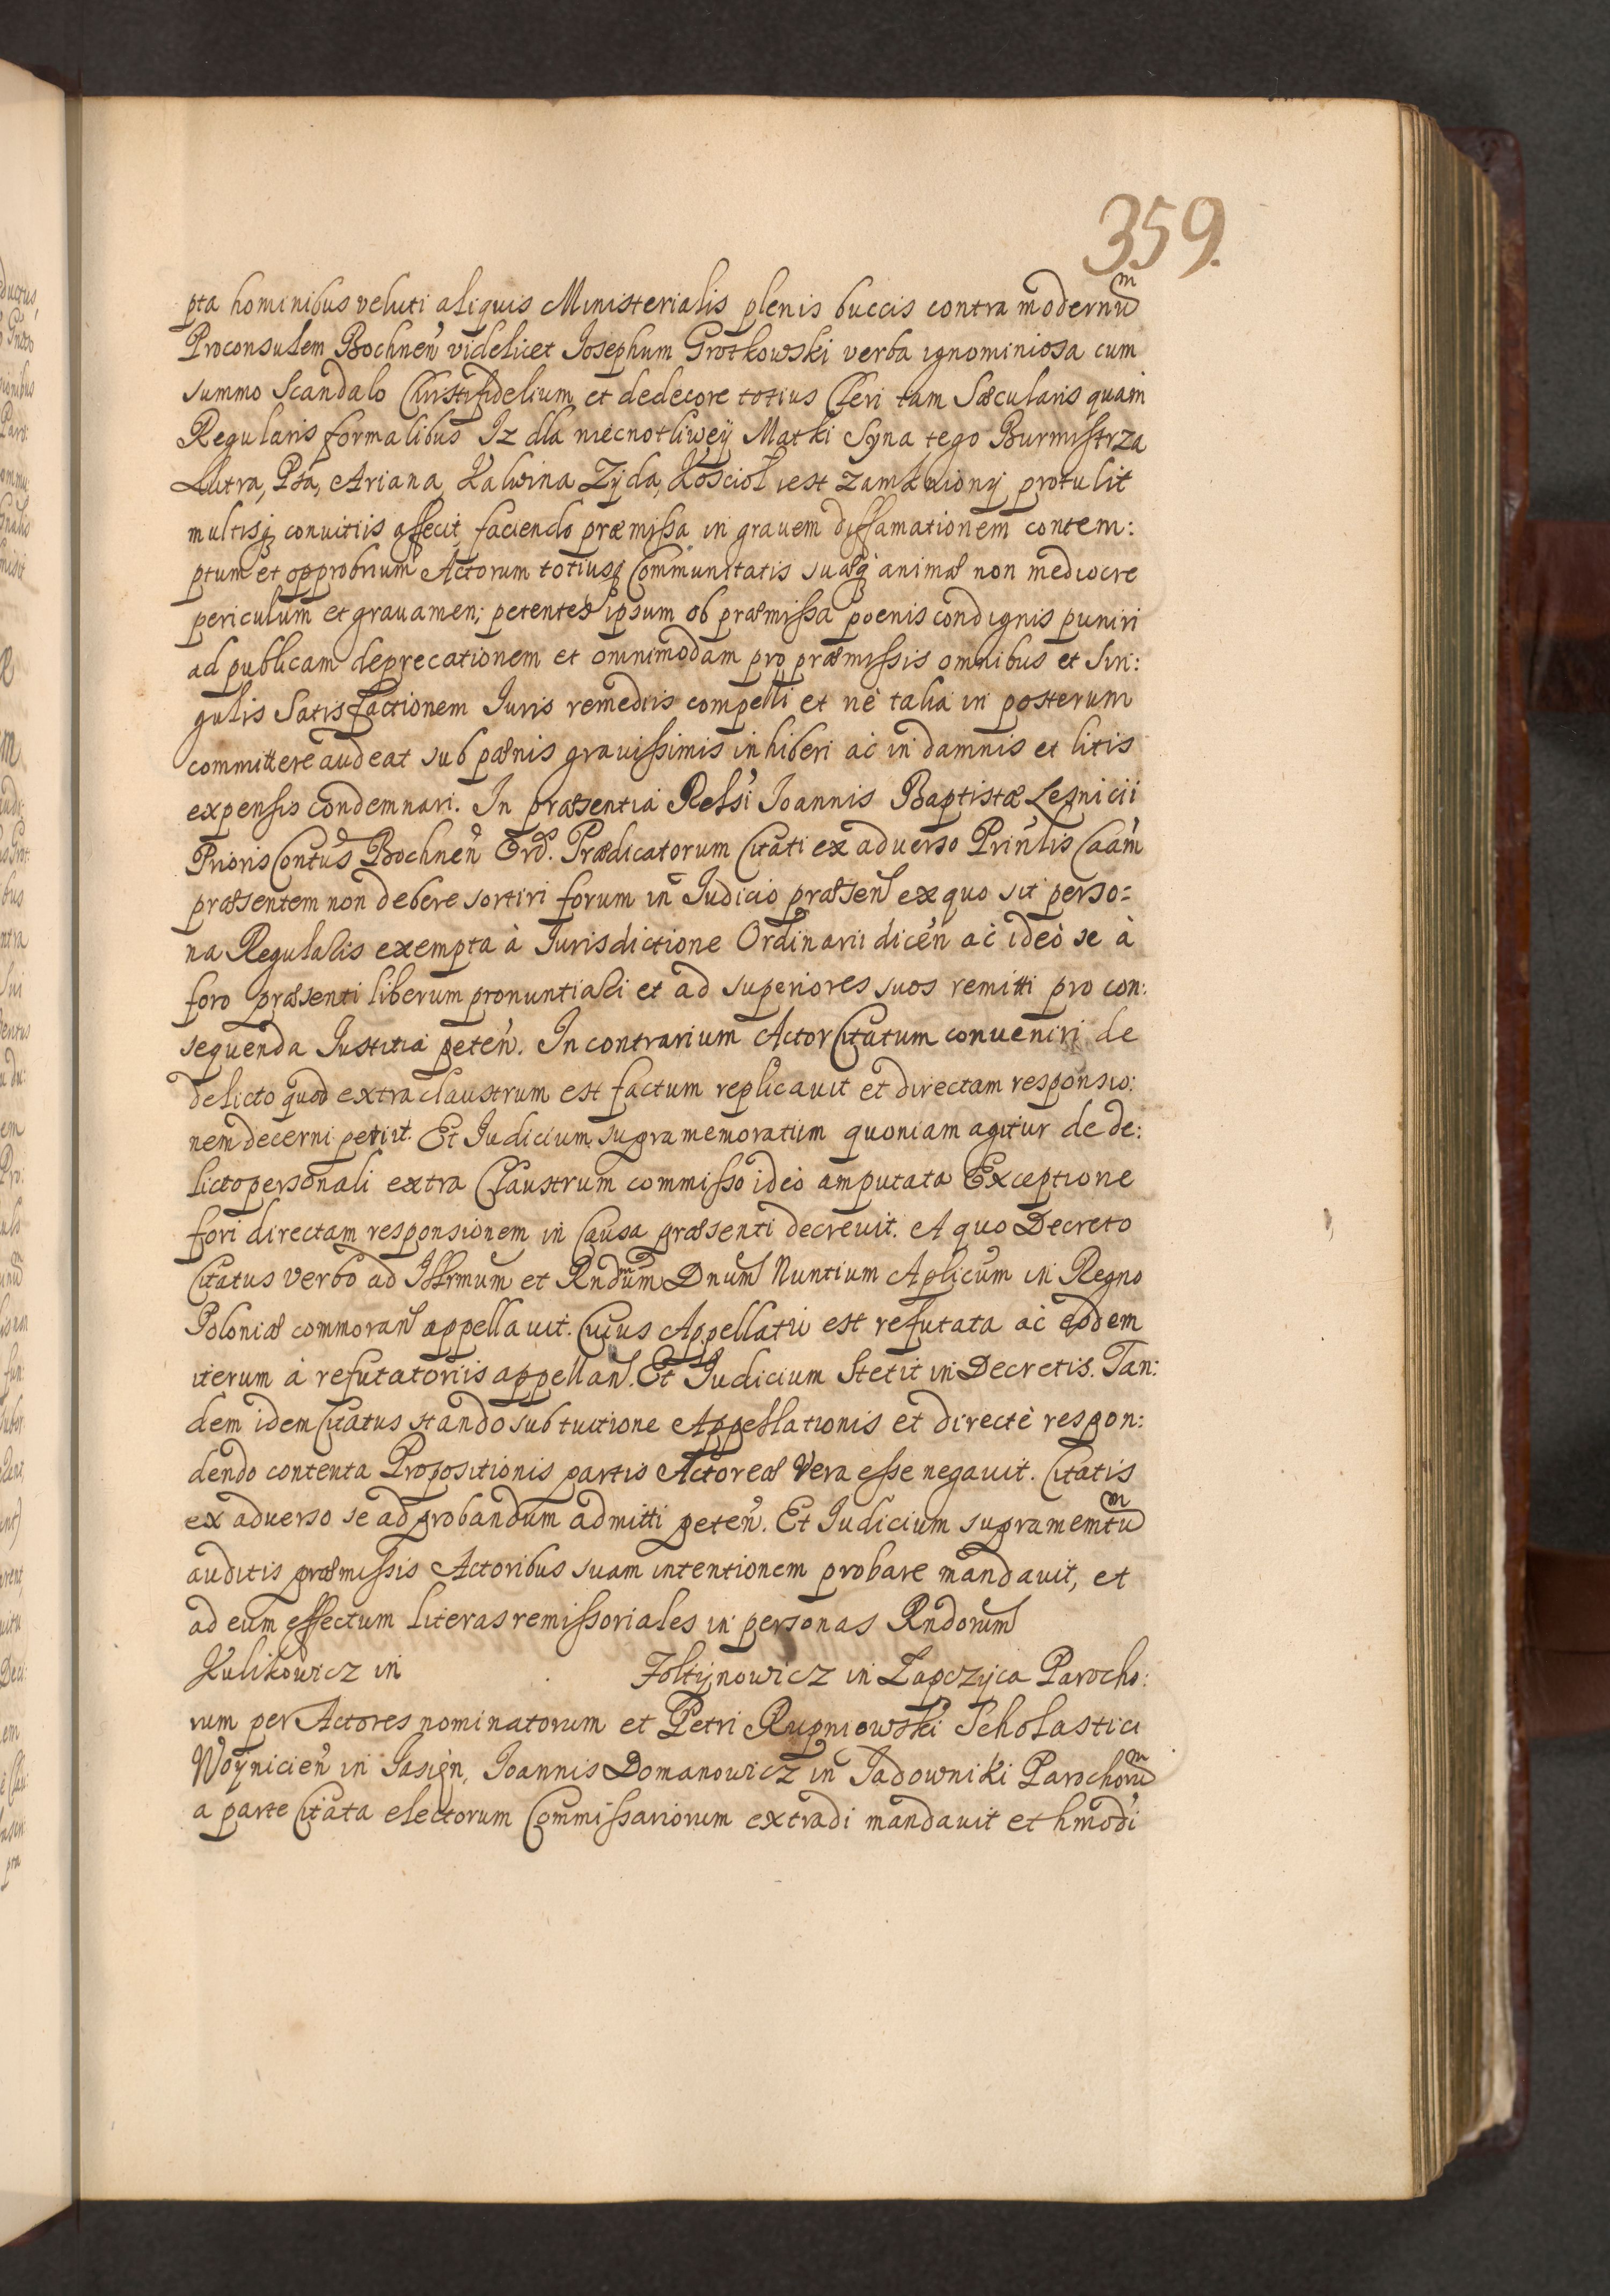 359.
pta hominibus veluti aliquis Ministerialis plenis buccis contra modernũm
Proconsulem Bochneñ videlicet Josephum Grotkowski verba ignominiosa cum
summo Scandalo Christifidelium et dedecore totius Cleri tam Sæcularis quam
Regularis formalibus Iz dla niecnotliwey Matki Syna tego Burmistrza
Lutra, Psa, Ariana, Kalwina Zyda, Kosciol iest zamkniony protulit
multisq conuitiis affecit, faciendo præmissa in grauem diffamationem contem:
ptum et opprobrium Actorum totiusq Communitatis suæq animæ non mediocre
periculum et grauamen; petentes ipsum ob præmissa poenis condignis puniri
ad publicam deprecationem et omnimodam pro præmissis omnibus et sin:
gulis Satisfactionem Iuris remediis compelli et nè talia in posterum
committere audeat sub pænis grauissimis inhiberi ac in damnis et litis
expensis condemnari. In præsentia Relsi Joannis Baptistæ Leznicii
Prioris Contus Bochneñ Ord. Prædicatorum Citati ex aduerso Prinlis Caam
præsentem non debere sortiri forum in Judicio præsen ex quo sit perso=
na Regularis exempta à Jurisdictione Ordinarii diceñ ac ideò se à
foro præsenti liberum pronuntiari et ad superiores suos remitti pro con:
sequenda Justitia peteñ. In contrarium Actor Citatum conueniri de
delicto quod extra claustrum est factum replicauit et directam responsio:
nem decerni petiit. Et Judicium supramemoratum quoniam agitur de de:
licto personali extra Claustrum commisso ideò amputata Exceptione
fori directam responsionem in Causa præsenti decreuit. A quo Decreto
Citatus verbo ad Illrmum et Rndmum Dnum Nuntium Aplicum in Regno
Poloniæ commoran appellauit. Cuius Appellatti est refutata ac eodem
iterum à refutatoriis appellan. Et Judicium Stetit in Decretis. Tan:
dem idem Citatus stando sub tuitione Appellationis et directè respon:
dendo contenta Propositionis partis Actoreæ Vera esse negauit. Citatis
ex aduerso se ad probandum admitti peteñ. Et Judicium supramemtũm
auditis præmissis Actoribus suam intentionem probare mandauit, et
ad eum effectum literas remissoriales in personas Rndorum
Kulikowicz in Zoltynowicz in Lapczyca Parocho:
rum per Actores nominatorum et Petri Rupniowski Scholastici
Woynicieñ in Jasign, Joannis Domanowicz in Jadowniki Parochorũm
a parte Citata electorum Commissariorum extradi mandauit et hmodi